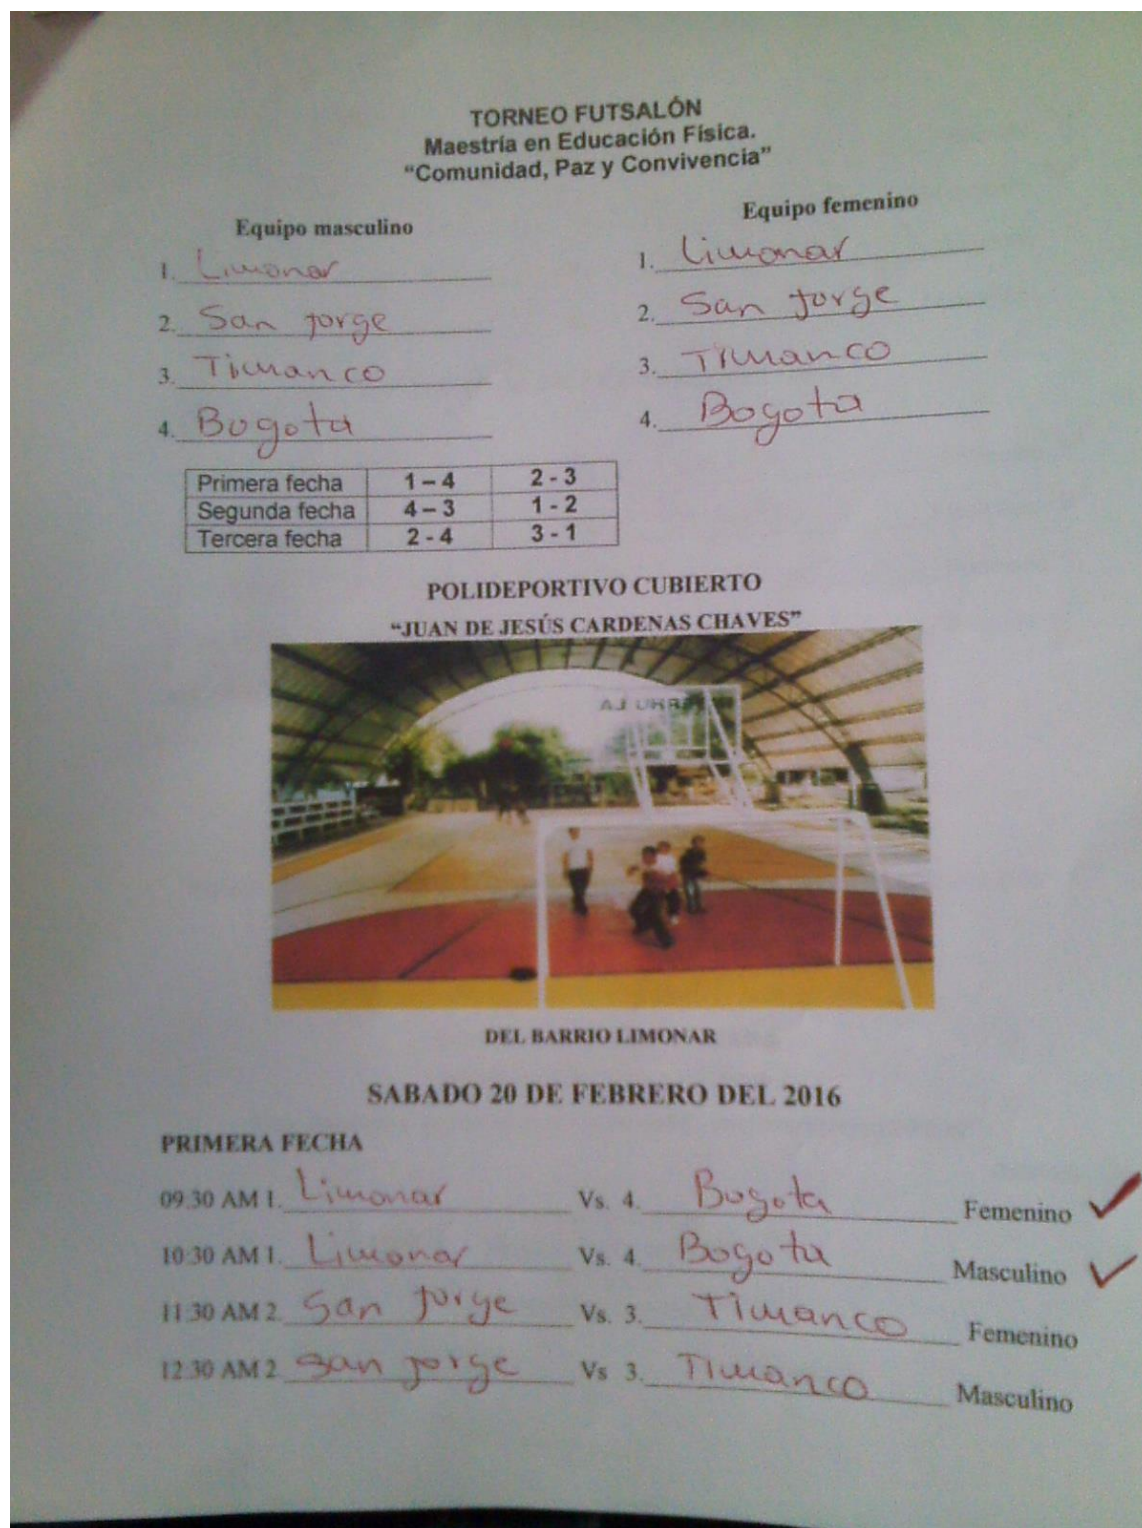 TORNEO FUTSALÓN
Maestría en Educación Física.
“Comunidad, Paz y Convivencia”
Equipo masculino Equipo femenino
1. Limonar 1. Limonar
2. San Jorge 2. San Jorge
3. Timanco 3. Timanco
4. Bogota 4. Bogota
Primera fecha 1 – 4 2 - 3
Segunda fecha 4 – 3 1 - 2
Tercera fecha 2 - 4 3 - 1
POLIDEPORTIVO CUBIERTO
“JUAN DE JESÚS CARDENAS CHAVES”
DEL BARRIO LIMONAR
SABADO 20 DE FEBRERO DEL 2016
PRIMERA FECHA
09:30 AM 1. Limonar Vs. 4. Bogota Femenino
10:30 AM 1. Limonar Vs. 4. Bogota Masculino
11:30 AM 2. San Jorge Vs. 3. Timanco Femenino
12:30 AM 2 San Jorge Vs 3. Timanco Masculino